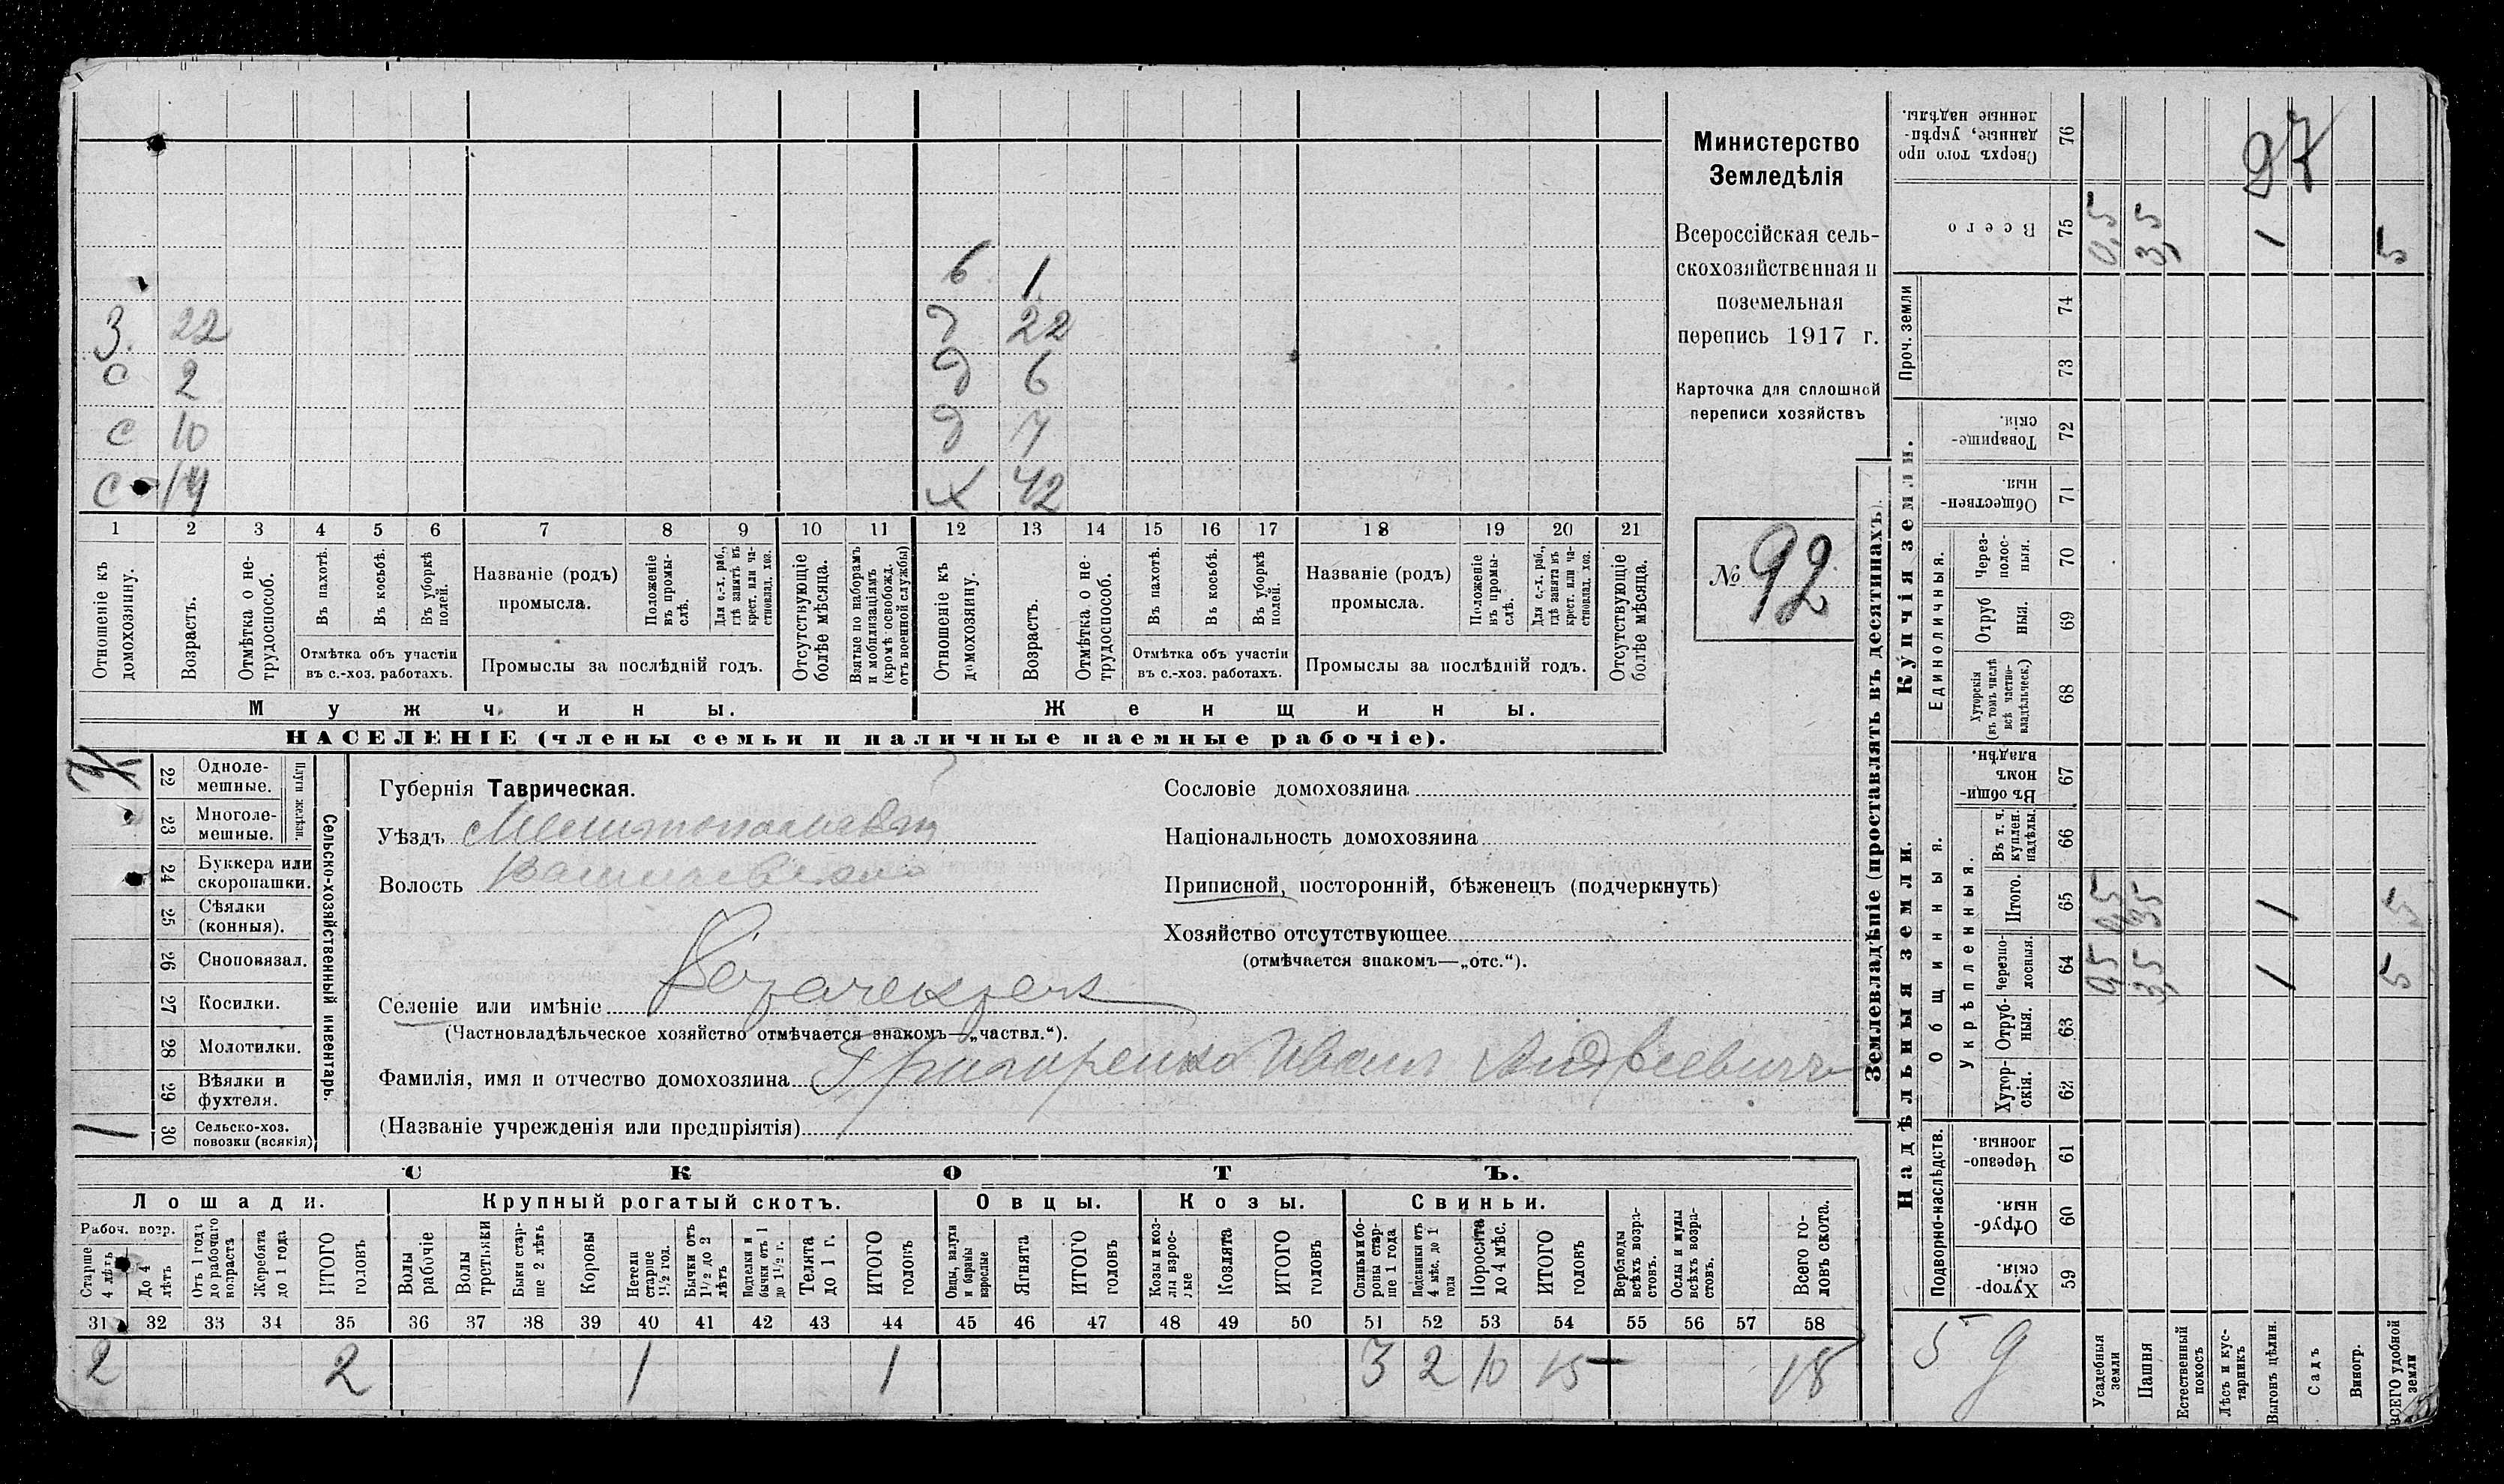 6 1
З. 22 д 22
с 2 д 6
с 10 д 7
с 14 х 42
1 2 3 4 5 6 7 8 9 10 11 12 13 14 15 16 17 18 19 20 21
Отношеніе къ домохозяину.
Возрастъ.
Отмѣтка о нетрудоспособ.
Въ пахотѣ.
Въ косьбѣ.
Въ уборкѣ полей.
Отмѣтка объ участіи въ с.-хоз. работахъ.
Названіе (родъ) промысла.
Положеніе въ промыслѣ.
Для с.-х. раб., гдѣ занятъ въ крест. или частновлад. хоз.
Промыслы за послѣдній годъ.
Отсутствующіе болѣе мѣсяца.
Взятые по наборамъ и мобилизаціямъ (кромѣ освобожд. отъ военной службы)
Отношеніе къ домохозяину.
Возрастъ.
Отмѣтка о нетрудоспособ.
Въ пахотѣ.
Въ косьбѣ.
Въ уборкѣ полей.
Отмѣтка объ участіи въ с.-хоз. работахъ.
Названіе (родъ) промысла.
Положеніе въ промыслѣ.
Для с.-х. раб., гдѣ занята въ крест. или частновлад. хоз.
Промыслы за послѣдній годъ.
Отсутствующіе болѣе мѣсяца.
Мужчины.
Женщины.
НАСЕЛЕНІЕ (члены семьи и наличные наемные рабочіе).
Министерство
Земледѣлія
Всероссійская сель-
скохозяйственная и
поземельная
перепись 1917 г.
Карточка для сплошной
переписи хозяйствъ
№ 92
22 Однолемешные.
23 Многолемешные.
Плуги желѣзн.
24 Буккера или скоропашки.
25 Сѣялки (конныя).
26 Сноповязал.
27 Косилки.
28 Молотилки.
29 Вѣялки и фухтеля.
1 30 Сельско-хоз. повозки (всякія)
Сельско-хозяйственный инвентарь.
Губернія Таврическая.
Уѣздъ Мелитопольскій
Волость
Селеніе или имѣніе
(Частновладѣльческое хозяйство отмѣчается знакомъ—„частвл.“).
Фамилія, имя и отчество домохозяина Григоренко Иван Андреевичъ
(Названіе учрежденія или предпріятія)
Сословіе домохозяина
Національность домохозяина
Приписной, посторонній, бѣженецъ (подчеркнуть)
Хозяйство отсутствующее
(отмѣчается знакомъ—„отс.“).
СКОТЪ.
Лошади. Крупный рогатый скотъ. Овцы. Козы. Свиньи.
Рабоч. возр.
Старше 4 лѣтъ
До 4 лѣтъ
Отъ 1 года до рабочаго возраста
Жеребята до 1 года
ИТОГО головъ
Волы рабочіе
Волы третьяки
Быки старше 2 лѣтъ
Коровы
Нетели старше 1½ год.
Бычки отъ 1½ до 2 лѣтъ
Подтелки и бычки отъ 1 до 1½ г.
Телята до 1 г.
ИТОГО головъ
Овцы, валухи и бараны взрослые
Ягнята
ИТОГО головъ
Козы и козлы взрослые
Козлята
ИТОГО головъ
Свиньи и бороны старше 1 года
Подсвинки отъ 4 мѣс. до 1 года
Поросята до 4 мѣс.
ИТОГО головъ
Верблюды всѣхъ возрастовъ.
Ослы и мулы всѣхъ возрастовъ.
Всего головъ скота.
31 32 33 34 35 36 37 38 39 40 41 42 43 44 45 46 47 48 49 50 51 52 53 54 55 56 57 58
2 2 1 1 3 2 10 15 18
Землевладѣніе (проставлять въ десятинахъ).
Надѣльныя земли.
Купчія земли.
Проч. земли
Подворно-наслѣдств.
Общинныя.
Укрѣпленныя.
Единоличныя.
Сверхъ того проданные, укрѣпленные надѣлы. 76
97
Всего 75 0,5 3,5 1 5
74
73
Товарищескія. 72
Общественныя. 71
Черезполосныя. 70
Отрубныя. 69
Хуторскія (въ томъ числѣ всѣ частновладѣльческ.) 68
Въ общинномъ владѣн. 67
Въ т. ч. куплен. надѣлы 66
Итого. 65 0,5 3,5 1 5
Черезполосныя. 64 0,5 3,5 1 5
Отрубныя. 63
Хуторскія. 62
Черезполосныя. 61
Отрубныя. 60
Хуторскія. 59
5 9
Усадебныя земли
Пашня
Естественный покосъ
Лѣсъ и кустарникъ
Выгонъ цѣлин.
Садъ
Виногр.
ВСЕГО удобной земли